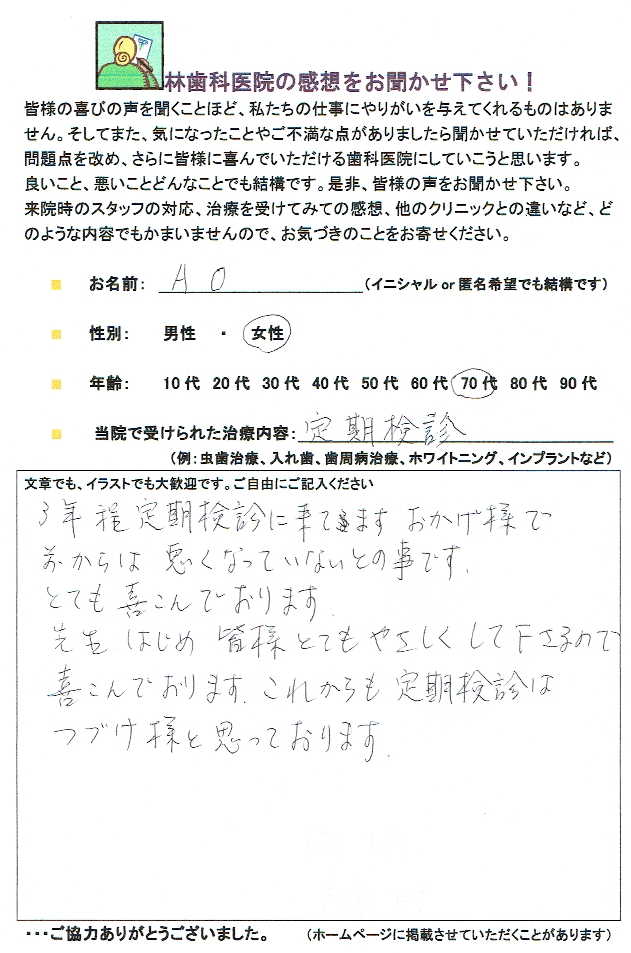 林歯科医院の感想をお聞かせ下さい！
皆様の喜びの声を聞くことほど、私たちの仕事にやりがいを与えてくれるものはありま
せん。そしてまた、気になったことやご不満な点がありましたら聞かせていただければ、
問題点を改め、さらに皆様に喜んでいただける歯科医院にしていこうと思います。
良いこと、悪いことどんなことでも結構です。是非、皆様の声をお聞かせ下さい。
来院時のスタッフの対応、治療を受けてみての感想、他のクリニックとの違いなど、ど
のような内容でもかまいませんので、お気づきのことをお寄せください。
お名前： A O （イニシャル or 匿名希望でも結構です）
性別： 男性 ・ 女性
年齢： 10代 20代 30代 40代 50代 60代 70代 80代 90代
当院で受けられた治療内容：定期検診
（例：虫歯治療、入れ歯、歯周病治療、ホワイトニング、インプラントなど）
文章でも、イラストでも大歓迎です。ご自由にご記入ください
3年程定期検診に来てます おかげ様で
前からは 悪くなっていないとの事です.
とても喜こんでおります.
先生はじめ 皆様とてもやさしくして下さるので
喜こんでおります. これからも定期検診は
つづけ様と思っております.
・・・ご協力ありがとうございました。 （ホームページに掲載させていただくことがあります）